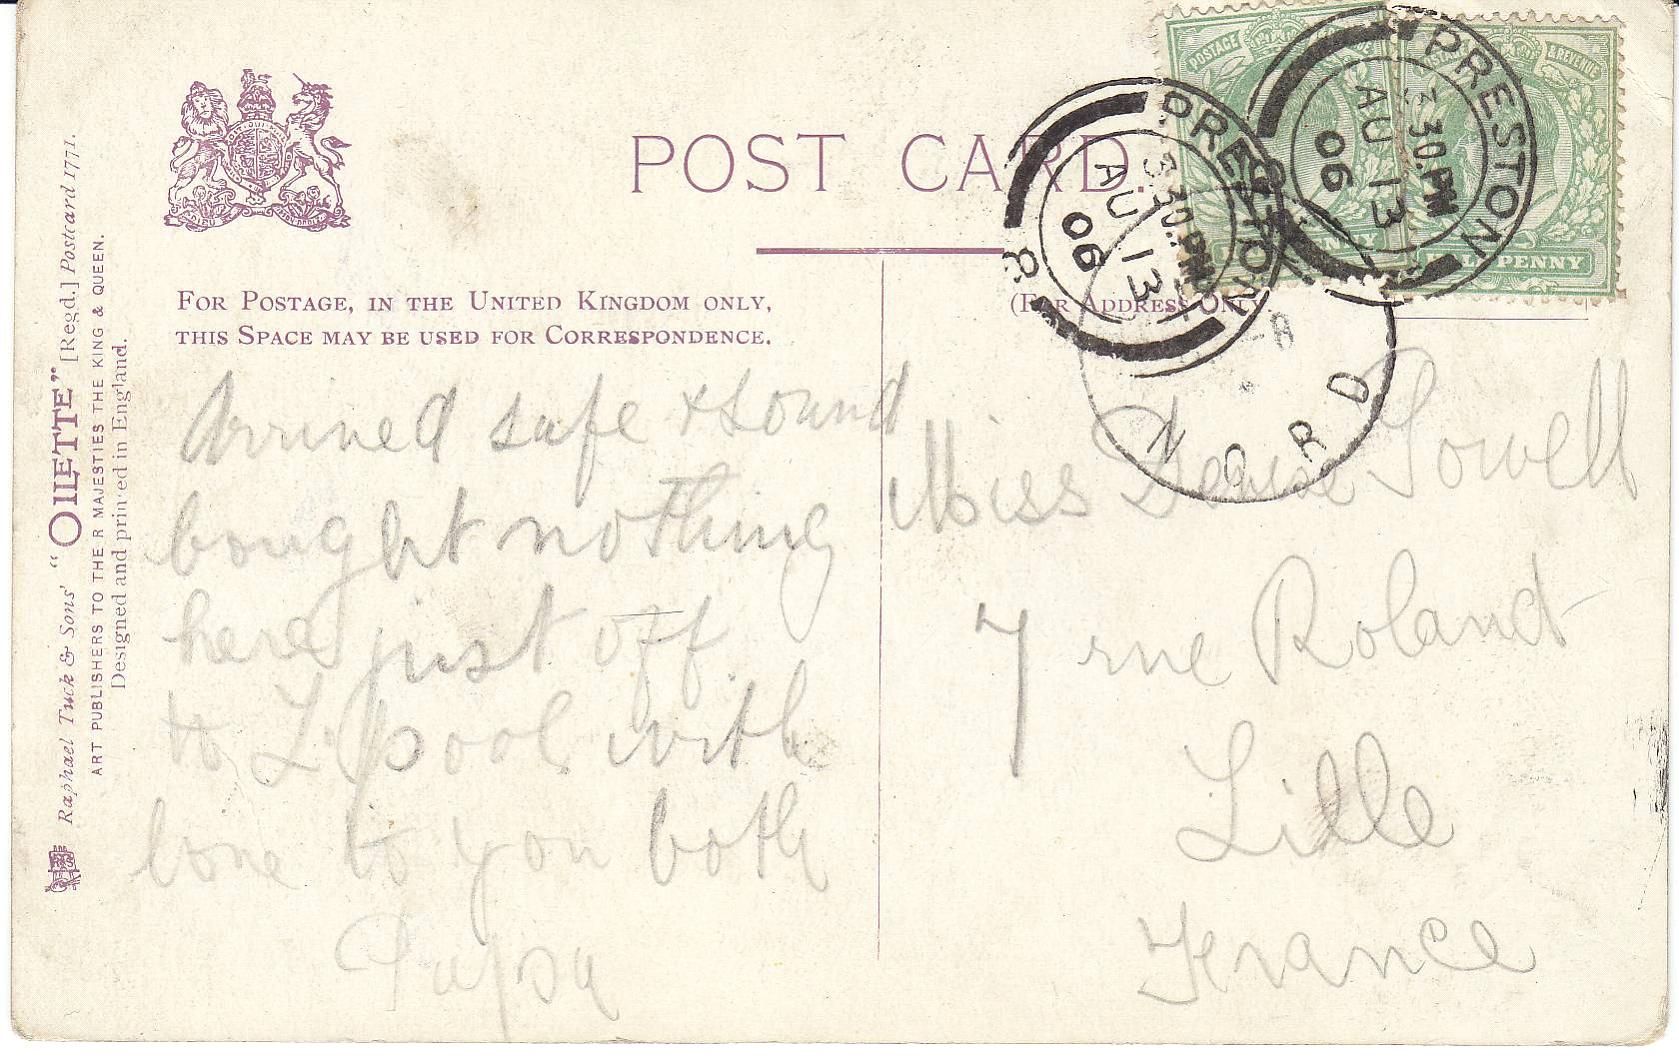 POST CARD.
FOR POSTAGE, IN THE UNITED KINGDOM ONLY,
THIS SPACE MAY BE USED FOR CORRESPONDENCE.
(FOR ADDRESS ONLY
Raphael Tuck & Sons' "OILETTE" [Regd.] Postcard 1771.
ART PUBLISHERS TO THEIR MAJESTIES THE KING & QUEEN.
Designed and printed in England.
Arrived safe & sound
bought nothing
here just off
to L'pool with
love to you both
Papa
Miss Denise
7 rue Roland
Lille
France
POSTAGE
& REVENUE
HALFPENNY
PRESTON
3 30.PM
AU 13
06
PRESTON
3 30.PM
AU 13
06
NORD